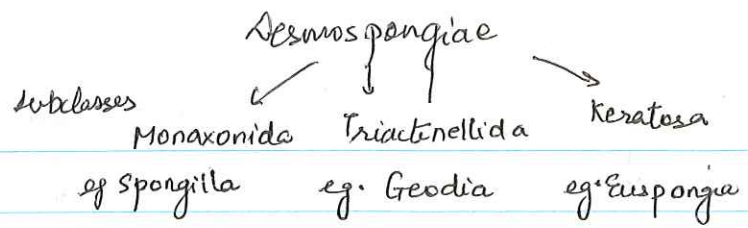 Desmospongiae
subclasses
Monaxonida Triactinellida Keratosa
eg Spongilla eg. Geodia eg. Euspongia